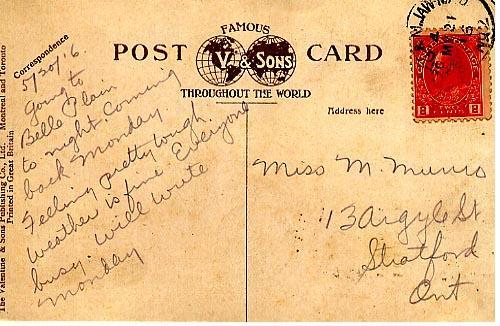 FAMOUS
POST V. & SONS CARD
THROUGHOUT THE WORLD
Correspondence
Address here
5/20/16.
Going to
Belle Plain
to night. Coming
back Monday
Feeling pretty tough.
Weather is fine Everyone
busy. Will write
Monday
Miss M. Munro
13 Argyle St.
Stratford
Ont.
The Valentine & Sons Publishing Co., Ltd. Montreal and Toronto
Printed in Great Britain